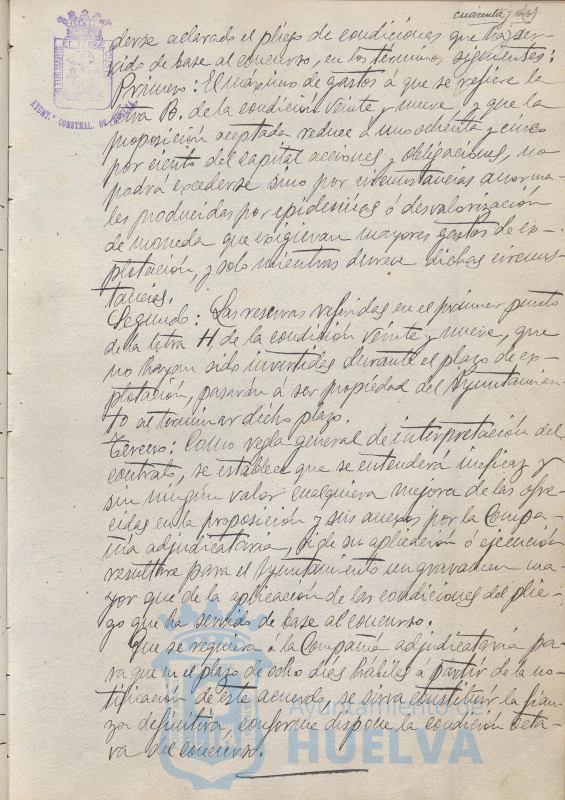 cuarenta y dos
derse aclarado el pliego de condiciones que ha ser-
vido de base al concurso, en los términos siguientes:
Primero: El máximo de gastos á que se refiere la
letra B. de la condición veinte y nueve, y que la
proposición aceptada reduce á un ochenta y cinco
por ciento del capital acciones y obligaciones, no
podrá excederse sino por circunstancias anorma-
les producidas por epidemias ó desvalorización
de moneda que exigieran mayores gastos de ex-
plotación, y solo mientras duren dichas circuns-
tancias.
Segundo: Las reservas referidas en el primer punto
de la letra H de la condición veinte y nueve, que
no hayan sido invertidas durante el plazo de ex-
plotación, pasarán á ser propiedad del Ayuntamien-
to al terminar dicho plazo.
Tercero: Como regla general de interpretación del
contrato, se establece que se entenderá ineficaz y
sin ningún valor cualquiera mejora de las ofre-
cidas en la proposición y sus anexos por la Compa-
ñia adjudicataria, si de su aplicación ó ejecución
resultare para el Ayuntamiento un gravamen ma-
yor que de la aplicación de las condiciones del plie-
go que ha servido de base al concurso.
Que se requiera á la Compañia adjudicataria pa-
ra que en el plazo de ocho dias hábiles á partir de la no-
tificación de este acuerdo, se sirva constituir la fian-
za definitiva, conforme dispone la condición octa-
va del concurso.
AYUNT.º CONSTNAL. DE HUELVA
Ayuntamiento de
HUELVA